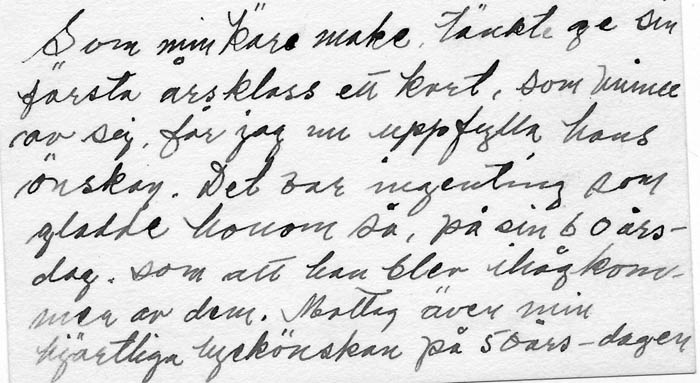 Som min käre make, tänkte ge sin
första årsklass ett kort, som minne
av sig, får jag nu uppfylla hans
önskan. Det var ingenting som
gladde honom så, på sin 60 års-
dag. som att han blev ihågkom-
men av dem. Mottag även min
hjärtliga lyckönskan på 50års-dagen